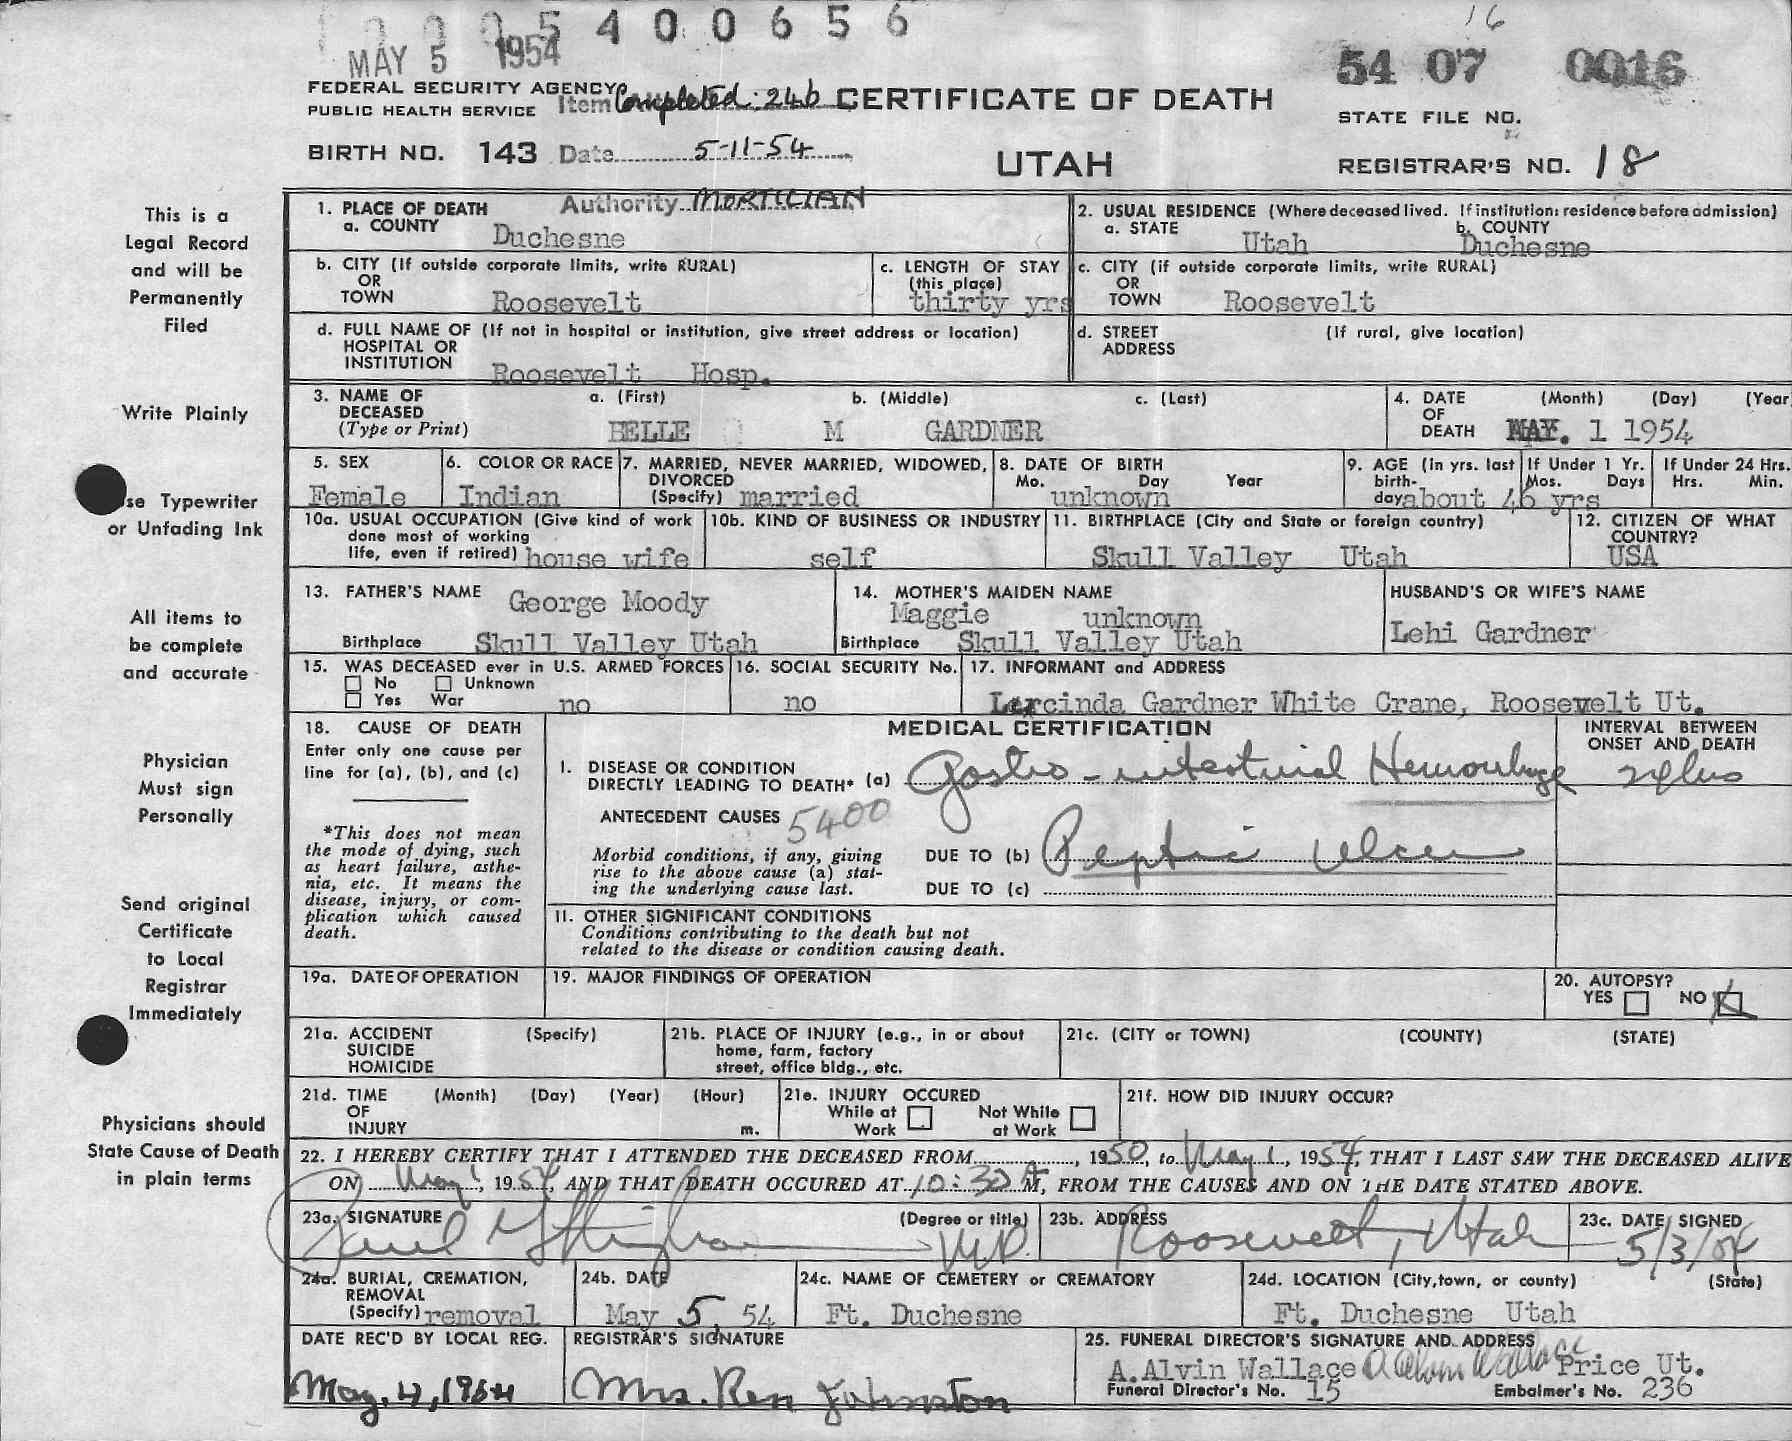 5 4 0 0 6 5 6
16
MAY 5 1954
54 07 0016
FEDERAL SECURITY AGENCY
PUBLIC HEALTH SERVICE
Item Completed: 24b
CERTIFICATE OF DEATH
STATE FILE NO.
BIRTH NO. 143 Date 5-11-54
UTAH
REGISTRAR'S NO. 18
Authority MORTICIAN
This is a
Legal Record
and will be
Permanently
Filed
Write Plainly
se Typewriter
or Unfading Ink
All items to
be complete
and accurate
Physician
Must sign
Personally
Send original
Certificate
to Local
Registrar
Immediately
Physicians should
State Cause of Death
in plain terms
1. PLACE OF DEATH
a. COUNTY Duchesne
2. USUAL RESIDENCE (Where deceased lived. If institution: residence before admission)
a. STATE Utah b. COUNTY Duchesne
b. CITY (If outside corporate limits, write RURAL)
OR
TOWN Roosevelt
c. LENGTH OF STAY
(this place)
thirty yrs
c. CITY (if outside corporate limits, write RURAL)
OR
TOWN Roosevelt
d. FULL NAME OF (If not in hospital or institution, give street address or location)
HOSPITAL OR
INSTITUTION Roosevelt Hosp.
d. STREET (If rural, give location)
ADDRESS
3. NAME OF
DECEASED
(Type or Print)
a. (First) b. (Middle) c. (Last)
BELLE M GARDNER
4. DATE (Month) (Day) (Year
OF
DEATH MAY. 1 1954
5. SEX
Female
6. COLOR OR RACE
Indian
7. MARRIED, NEVER MARRIED, WIDOWED,
DIVORCED
(Specify) married
8. DATE OF BIRTH
Mo. Day Year
unknown
9. AGE (In yrs. last
birth-
day about 46 yrs
If Under 1 Yr.
Mos. Days
If Under 24 Hrs.
Hrs. Min.
10a. USUAL OCCUPATION (Give kind of work
done most of working
life, even if retired) house wife
10b. KIND OF BUSINESS OR INDUSTRY
self
11. BIRTHPLACE (City and State or foreign country)
Skull Valley Utah
12. CITIZEN OF WHAT
COUNTRY?
USA
13. FATHER'S NAME George Moody
Birthplace Skull Valley Utah
14. MOTHER'S MAIDEN NAME
Maggie unknown
Birthplace Skull Valley Utah
HUSBAND'S OR WIFE'S NAME
Lehi Gardner
15. WAS DECEASED ever in U.S. ARMED FORCES
No Unknown
Yes War no
16. SOCIAL SECURITY No.
no
17. INFORMANT and ADDRESS
Lercinda Gardner White Crane, Roosevelt Ut.
18. CAUSE OF DEATH
Enter only one cause per
line for (a), (b), and (c)
*This does not mean
the mode of dying, such
as heart failure, asthe-
nia, etc. It means the
disease, injury, or com-
plication which caused
death.
MEDICAL CERTIFICATION
INTERVAL BETWEEN
ONSET AND DEATH
I. DISEASE OR CONDITION
DIRECTLY LEADING TO DEATH* (a) Gastro-intestinal Hemorrhage
ANTECEDENT CAUSES 5400
Morbid conditions, if any, giving
rise to the above cause (a) stat-
ing the underlying cause last.
DUE TO (b) Peptic Ulcer
DUE TO (c)
II. OTHER SIGNIFICANT CONDITIONS
Conditions contributing to the death but not
related to the disease or condition causing death.
19a. DATE OF OPERATION
19. MAJOR FINDINGS OF OPERATION
20. AUTOPSY?
YES NO X
21a. ACCIDENT (Specify)
SUICIDE
HOMICIDE
21b. PLACE OF INJURY (e.g., in or about
home, farm, factory
street, office bldg., etc.
21c. (CITY or TOWN) (COUNTY) (STATE)
21d. TIME (Month) (Day) (Year) (Hour)
OF
INJURY m.
21e. INJURY OCCURED
While at Work Not While at Work
21f. HOW DID INJURY OCCUR?
22. I HEREBY CERTIFY THAT I ATTENDED THE DECEASED FROM , 1950, to May 1, 1954, THAT I LAST SAW THE DECEASED ALIVE
ON May 1, 1954, AND THAT DEATH OCCURED AT 10:30 A M, FROM THE CAUSES AND ON THE DATE STATED ABOVE.
23a. SIGNATURE (Degree or title)
M.D.
23b. ADDRESS
Roosevelt, Utah
23c. DATE SIGNED
5/3/54
24a. BURIAL, CREMATION,
REMOVAL
(Specify) removal
24b. DATE
May 5, 54
24c. NAME OF CEMETERY or CREMATORY
Ft. Duchesne
24d. LOCATION (City, town, or county) (State)
Ft. Duchesne Utah
DATE REC'D BY LOCAL REG.
May, 4, 1954
REGISTRAR'S SIGNATURE
Mrs. Ren Johnston
25. FUNERAL DIRECTOR'S SIGNATURE AND ADDRESS
A. Alvin Wallace A Alvin Wallace Price Ut.
Funeral Director's No. 15 Embalmer's No. 236